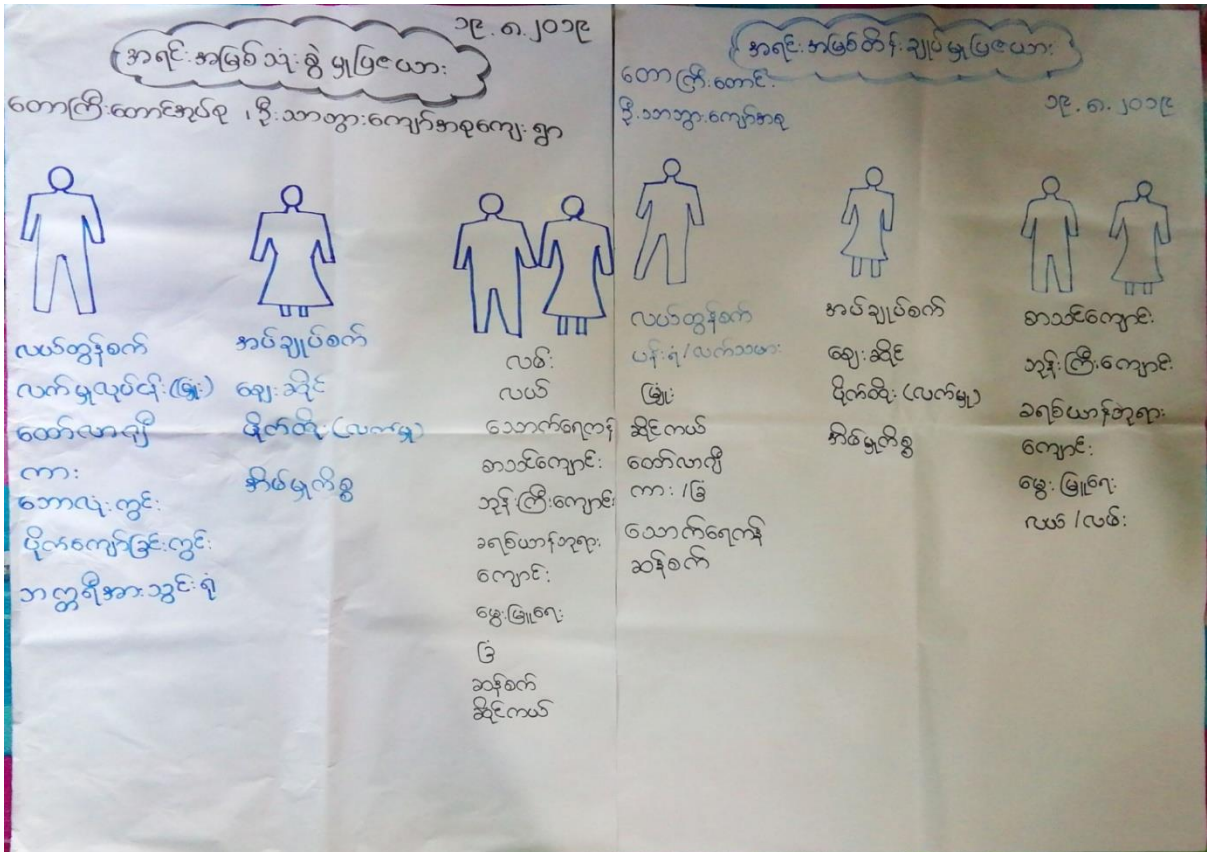 ၁၉.၈.၂၀၁၉
အရင်းအမြစ်သုံးစွဲမှုပြဇယား
တောကြီးတောင်အုပ်စု ၊ ဦးသာထွားကျော်အစုကျေးရွာ
လယ်ထွန်စက်
လက်မှုလုပ်ငန်း (မြှုံး)
ထော်လာဂျီ
ကား
ဘောလုံးကွင်း
ပိုက်ကျော်ခြင်းကွင်း
ဘက္ထရီအားသွင်းရုံ
အပ်ချုပ်စက်
ဈေးဆိုင်
ပိုက်ထိုး (လက်မှု)
အိမ်မှုကိစ္စ
လမ်း
လယ်
သောက်ရေကန်
စာသင်ကျောင်း
ဘုန်းကြီးကျောင်း
ခရစ်ယာန်ဘုရား
ကျောင်း
မွေးမြူရေး
ခြံ
ဆန်စက်
ဆိုင်ကယ်
အရင်းအမြစ်ထိန်းချုပ်မှုပြဇယား
တောကြီးတောင်
ဦးသာထွားကျော်အစု
၁၉.၈.၂၀၁၉
လယ်ထွန်စက်
ပန်းရံ/လက်သမား
မြှုံး
ဆိုင်ကယ်
ထော်လာဂျီ
ကား /ခြံ
သောက်ရေကန်
ဆန်စက်
အပ်ချုပ်စက်
ဈေးဆိုင်
ပိုက်ထိုး (လက်မှု)
အိမ်မှုကိစ္စ
စာသင်ကျောင်း
ဘုန်းကြီးကျောင်း
ခရစ်ယာန်ဘုရား
ကျောင်း
မွေးမြူရေး
လယ် /လမ်း